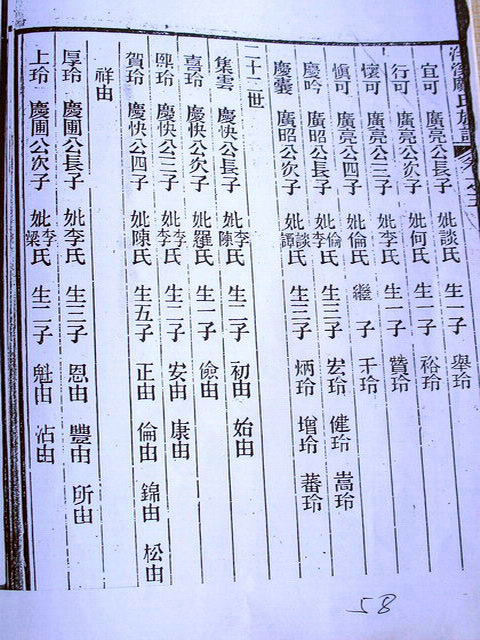 氏族譜 卷
宜可 廣亮公長子 妣談氏 生一子 舉玲
行可 廣亮公次子 妣何氏 生一子 裕玲
懷可 廣亮公三子 妣李氏 生一子 贊玲
慎可 廣亮公四子 妣倫氏 繼子 千玲
慶吟 廣昭公長子 妣倫李氏 生三子 宏玲 健玲 嵩玲
慶囊 廣昭公次子 妣談譚氏 生三子 炳玲 增玲 蕃玲
二十二世
集雲 慶快公長子 妣李陳氏 生二子 初由 始由
喜玲 慶快公次子 妣羅氏 生一子 儉由
熙玲 慶快公三子 妣李李氏 生二子 安由 康由
賀玲 慶快公四子 妣陳氏 生五子 正由 倫由 錦由 松由
祥由
厚玲 慶圃公長子 妣李氏 生三子 恩由 豐由 所由
上玲 慶圃公次子 妣李梁氏 生二子 魁由 沾由
58